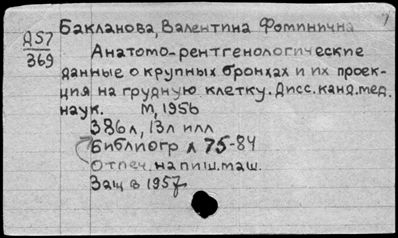 Бакланова, Валентина Фоминична
Д57
369
Анатомо-рентгенологические
данные о крупных бронхах и их проек-
ция на грудную клетку. Дисс. канд. мед.
наук. М, 1956
386л, 13л илл
Библиогр л 75-84
Отпеч. на пиш. маш.
Защ в 1957